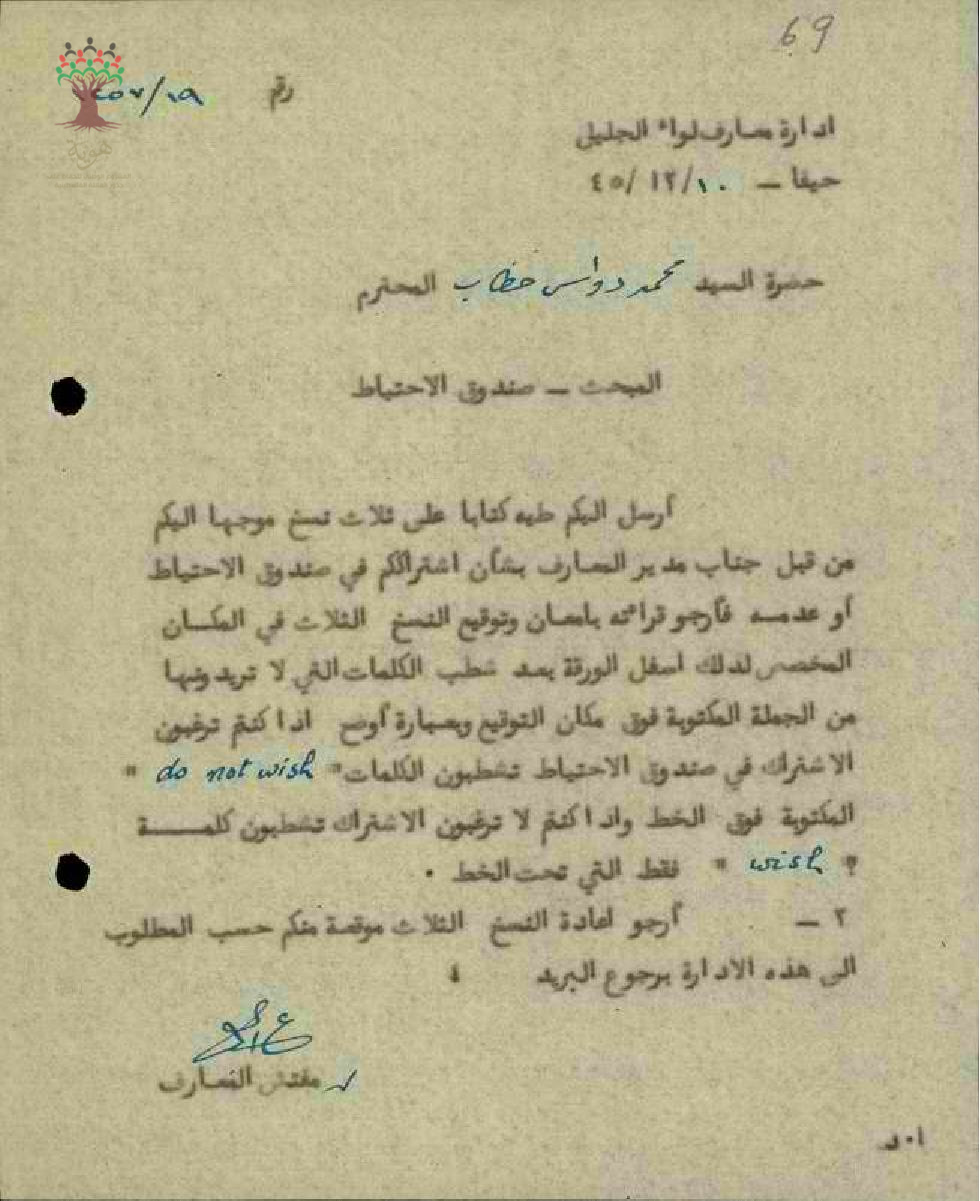 69
رقم ١٩/
ادارة معارف لواء الجليل
حيفا – ١٠/١٢/٤٥
حضرة السيد محمد دواس خطاب المحترم
المبحث – صندوق الاحتياط
أرسل اليكم طيه كتابا على ثلاث نسخ موجها اليكم
من قبل جناب مدير المعارف بشأن اشتراككم في صندوق الاحتياط
أو عدمه فأرجو قرائته بامعان وتوقيع النسخ الثلاث في المكان
المخصص لذلك اسفل الورقة بعد شطب الكلمات التي لا تريدونها
من الجملة المكتوبة فوق مكان التوقيع وبعبارة أوضح اذا كنتم ترغبون
الاشتراك في صندوق الاحتياط تشطبون الكلمات " do not wish "
المكتوبة فوق الخط واذا كنتم لا ترغبون الاشتراك تشطبون كلمــــة
" wish " فقط التي تحت الخط .
٢ – أرجو اعادة النسخ الثلاث موقعة منكم حسب المطلوب
الى هذه الادارة برجوع البريد
مفتش المعارف